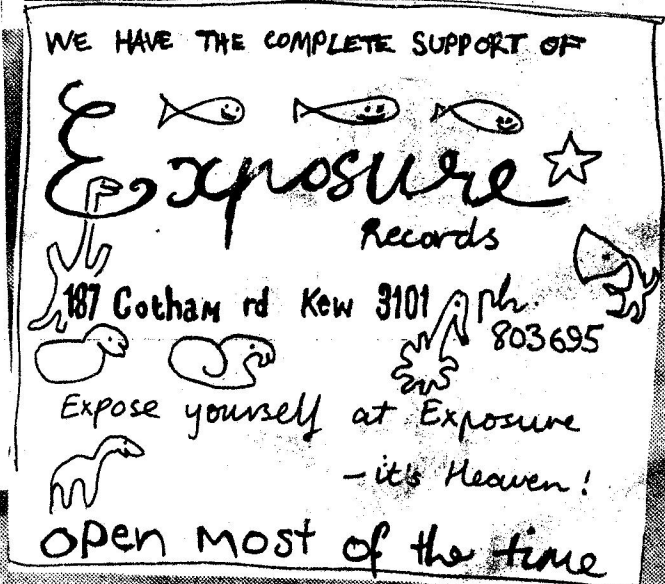 WE HAVE THE COMPLETE SUPPORT OF
Exposure
Records
187 Cotham rd Kew 3101 ph.
803695
Expose yourself at Exposure
- it's Heaven!
open most of the time